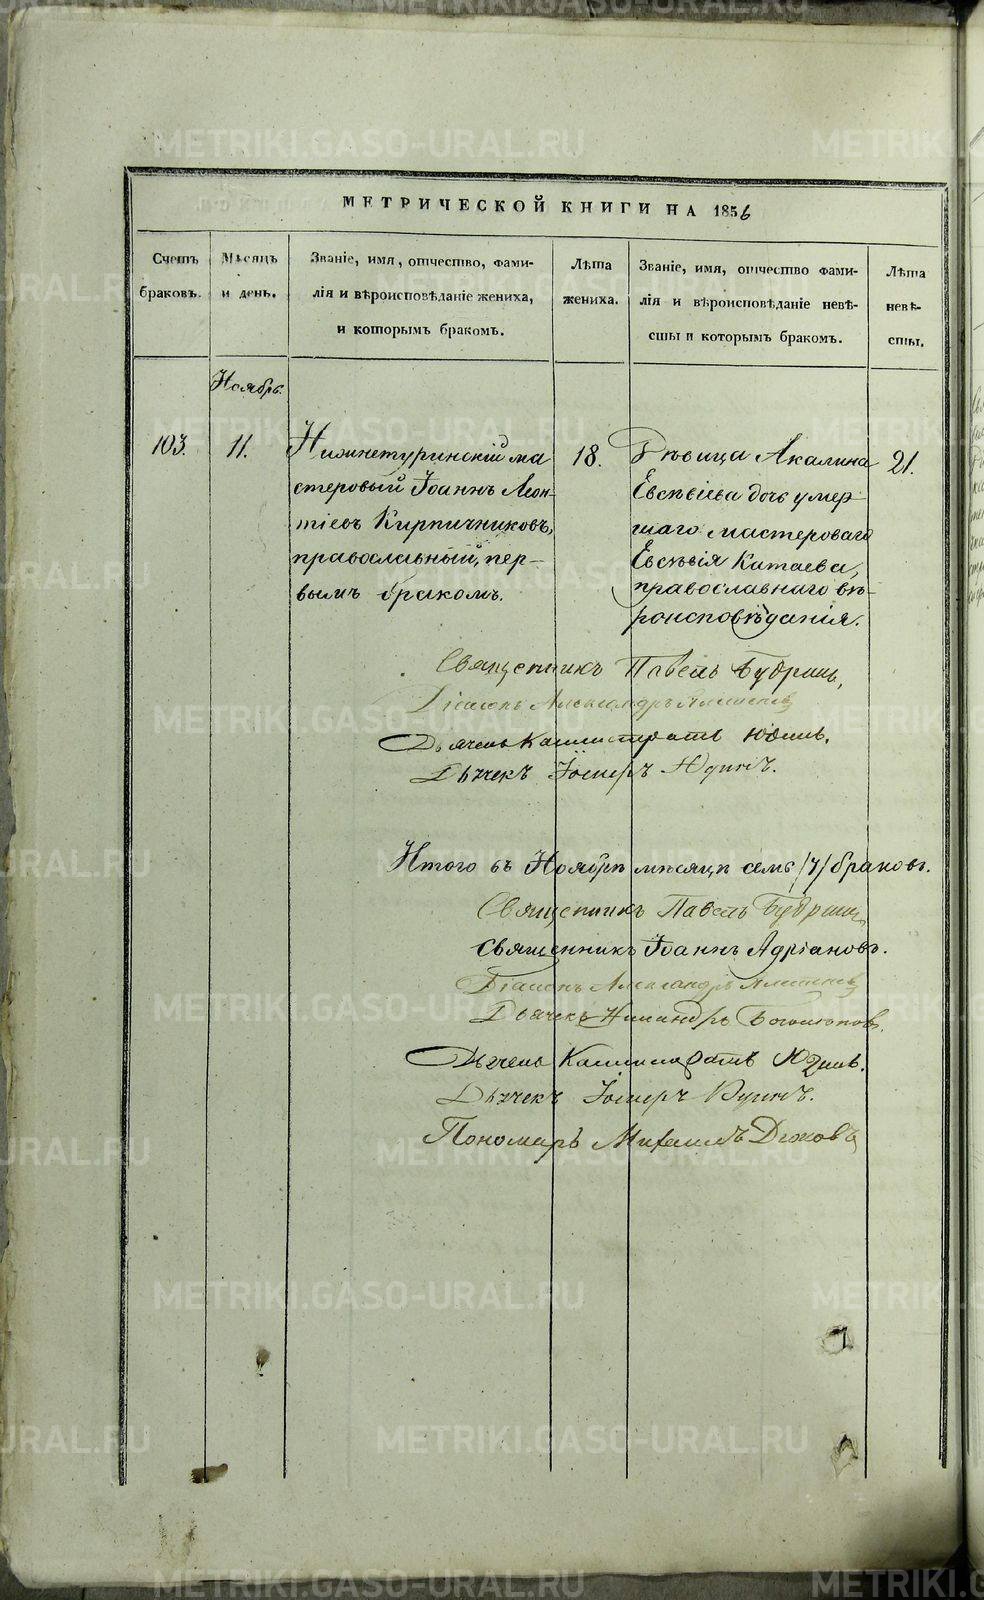 METRIKI.GASO-URAL.RU
МЕТРИЧЕСКОЙ КНИГИ НА 1856
Счетъ браковъ.
Мѣсяцъ и день.
Званіе, имя, отчество, фами-
лія и вѣроисповѣданіе жениха,
и которымъ бракомъ.
Лѣта жениха.
Званіе, имя, отчество фами-
лія и вѣроисповѣданіе невѣ-
сты и которымъ бракомъ.
Лѣта невѣ-
сты.
Ноябрь.
103.
11.
Нижнетуринскій ма
стеровый Іоаннъ Леон-
тіевъ Кирпичниковъ,
православный, пер-
вымъ бракомъ.
18.
Дѣвица Акалина
Евсѣвіева дочь умер
шаго мастероваго
Евсѣвія Катаева,
православнаго вѣ-
роисповѣданія.
21.
Священникъ Павелъ Будринъ,
Діаконъ Александръ
Дьячекъ Каллистратъ Юдинъ.
Дьячек
Итого въ Ноябрѣ мѣсяцѣ семь /7/ браковъ.
Священникъ Павелъ Будринъ,
Священникъ Іоаннъ Адріановъ.
Діаконъ Александръ
Дьячекъ Никандръ
Дьячекъ Каллистратъ Юдинъ.
Дьячекъ
Пономарь Михаилъ